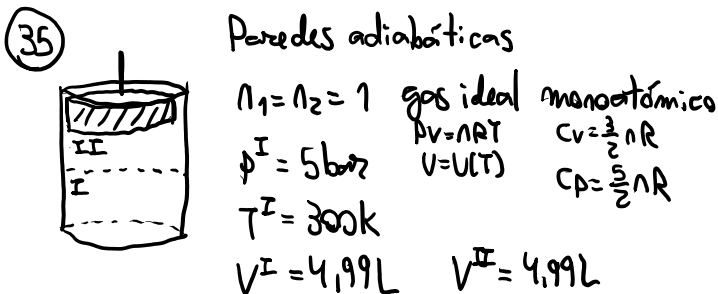 35
Paredes adiabáticas
n₁ = n₂ = 1 gas ideal monoatómico
PV = nRT Cv = 3/2 nR
p^I = 5 bar U = U(T) Cp = 5/2 nR
T^I = 300K
V^I = 4,99L V^II = 4,99L
II
I